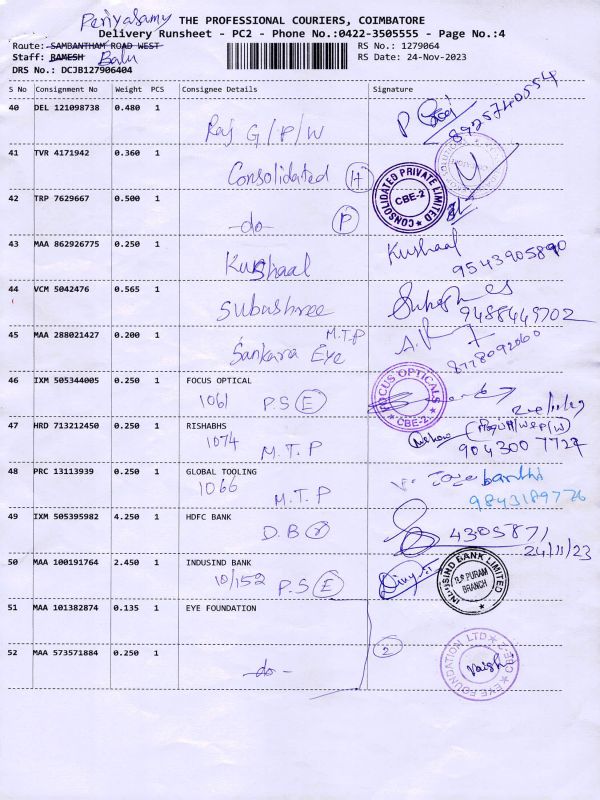 Periyasamy THE PROFESSIONAL COURIERS, COIMBATORE
Delivery Runsheet - PC2 - Phone No.:0422-3505555 - Page No.:4
Route: SAMBANTHAM ROAD WEST RS No.: 1279064
Staff: RAMESH Balu RS Date: 24-Nov-2023
DRS No.: DCJB127906404
S No Consignment No Weight PCS Consignee Details Signature
40 DEL 121098738 0.480 1
Raj G/P/W P 8925740554
41 TVR 4171942 0.360 1
Consolidated (H)
42 TRP 7629667 0.500 1 CONSOLIDATED PRIVATE LIMITED CBE-2
-do- (P)
43 MAA 862926775 0.250 1 Kushaal
Kushaal 9543905890
44 VCM 5042476 0.565 1
Subashree 9488449702
45 MAA 288021427 0.200 1 M.T.P
Sankara Eye 8778092060
46 IXM 505344005 0.250 1 FOCUS OPTICAL FOCUS OPTICALS CBE-2
1061 P.S (E)
47 HRD 713212450 0.250 1 RISHABHS
1074 M.T.P 904300 7727
48 PRC 13113939 0.250 1 GLOBAL TOOLING
1066 M.T.P 9843189776
49 IXM 505395982 4.250 1 HDFC BANK
D.B (r) 4305871
24/11/23
50 MAA 100191764 2.450 1 INDUSIND BANK INDUSIND BANK LIMITED R.S PURAM BRANCH
10/152 P.S (E)
51 MAA 101382874 0.135 1 EYE FOUNDATION
52 MAA 573571884 0.250 1 2 EYE FOUNDATION LTD CBE-2
-do-